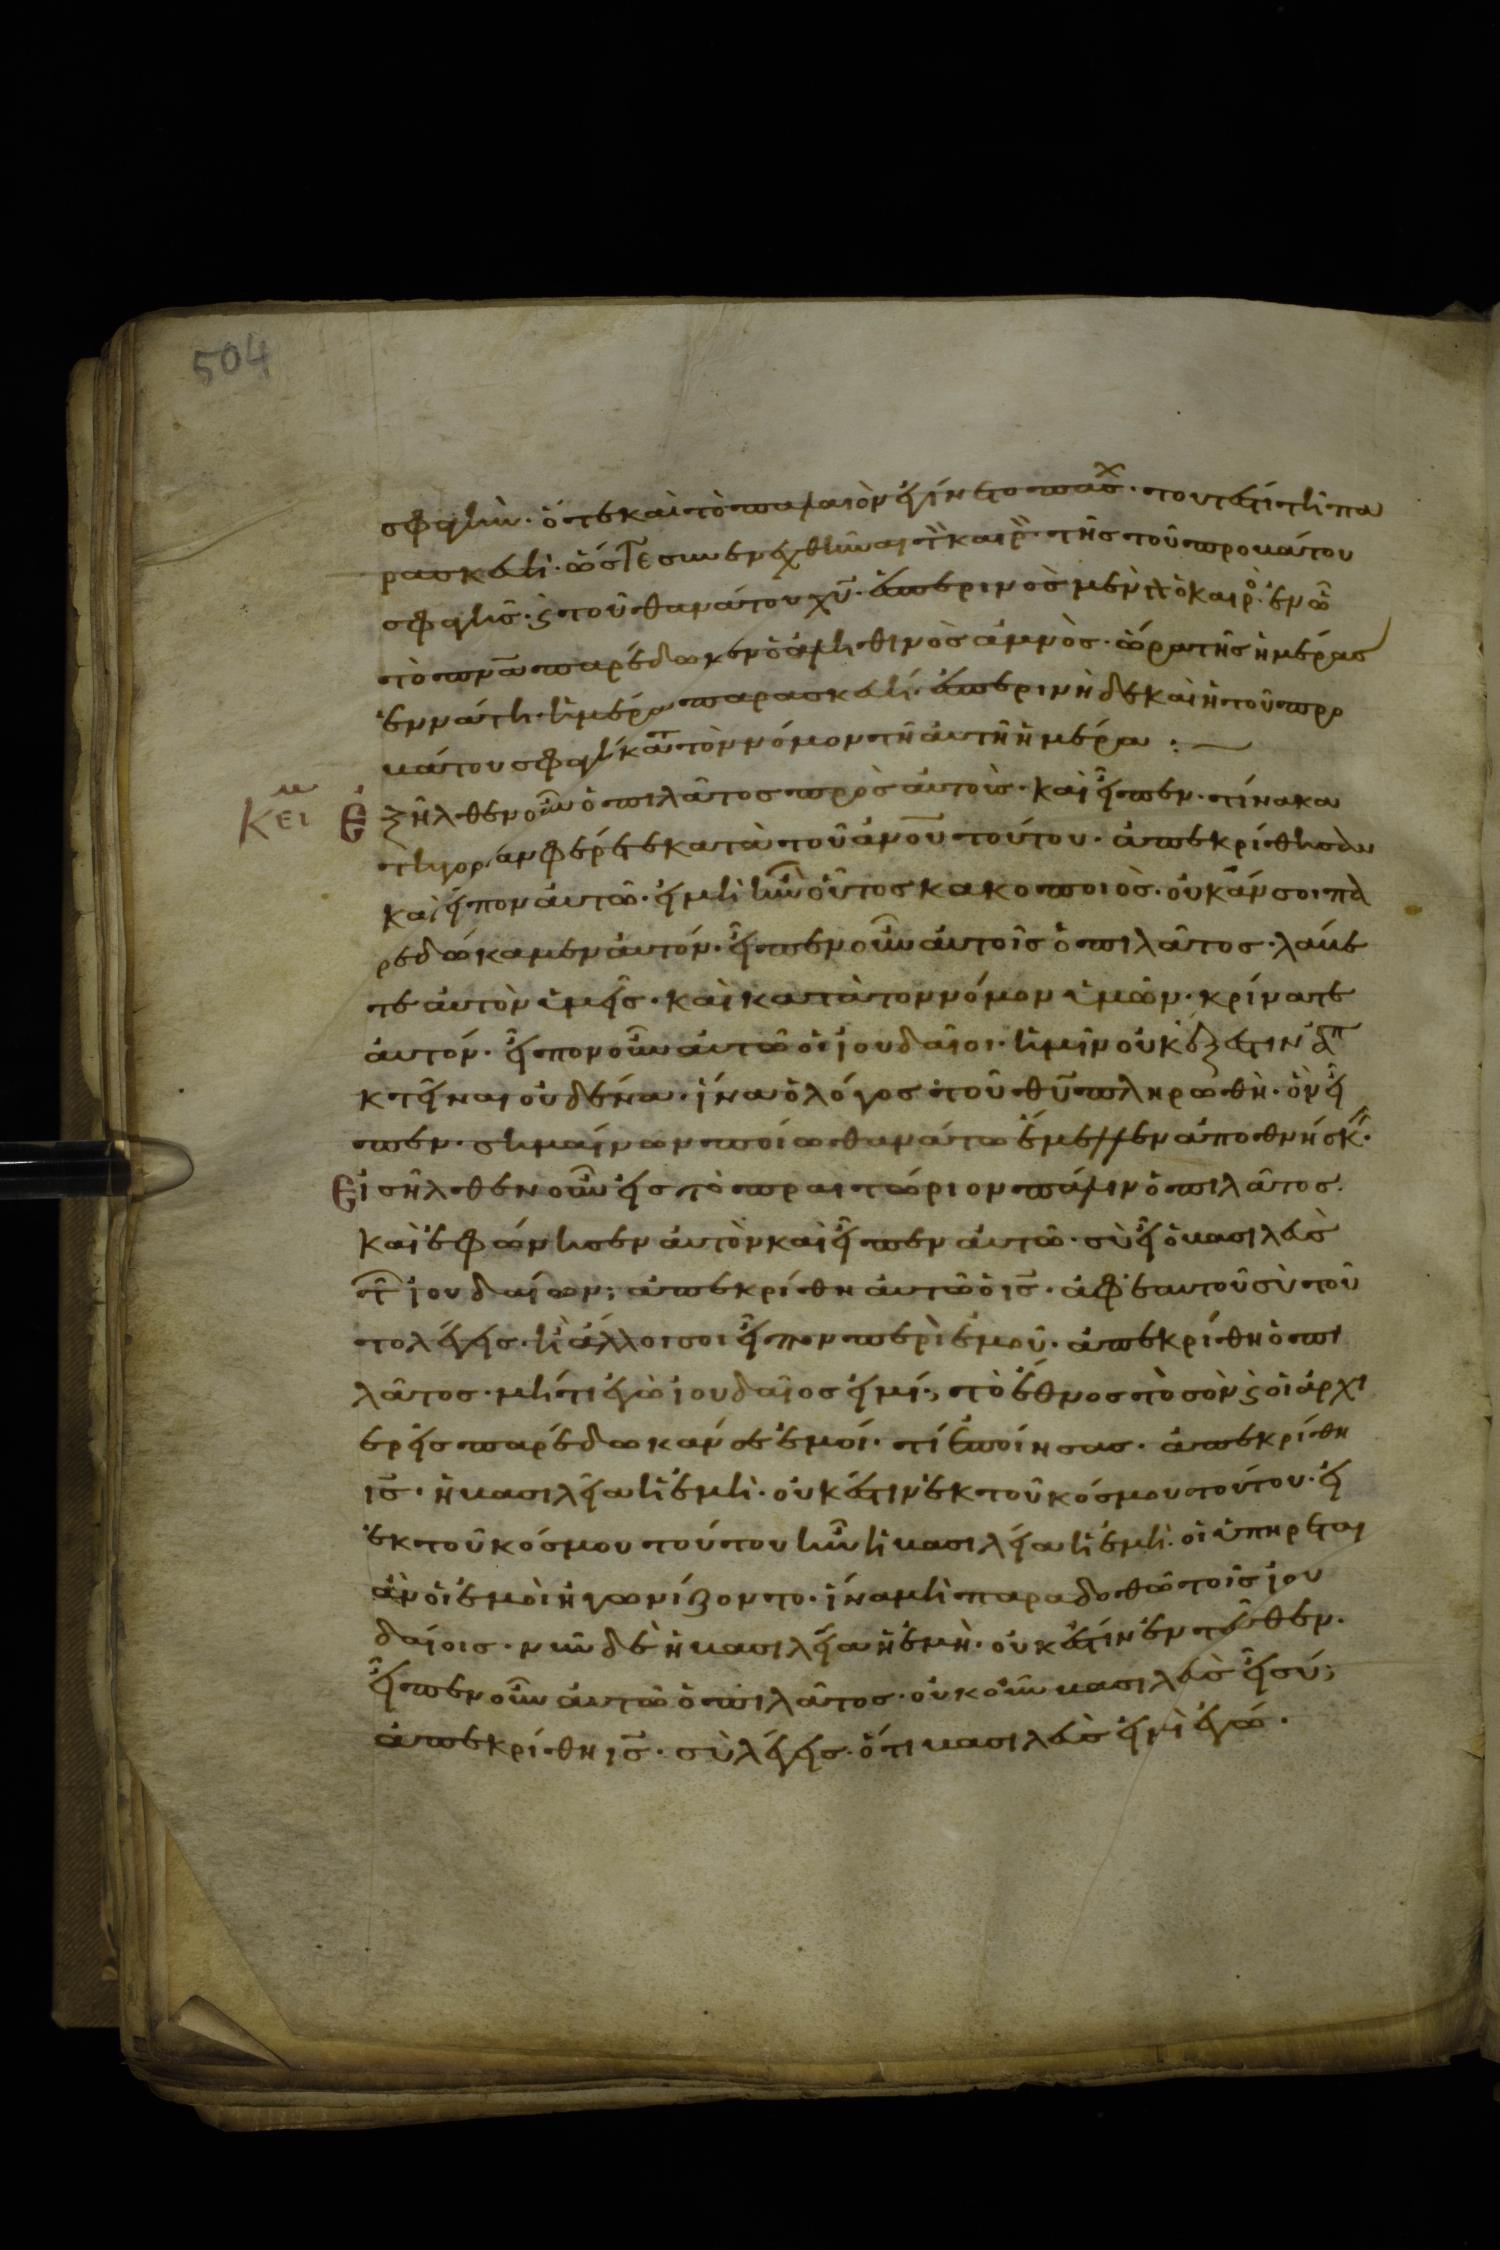 504
σφαγὴν· ὅτε καὶ τὸ παλαιὸν ἐγίνετο πάσχ· τουτέστι τῆ πα
ρασκευῆ· ὥστε συνενεχθῆναι τὸν καιρ· τῆς τοῦ προβάτου
σφαγῆς· ϗ τοῦ θανάτου χῦ· ἑσπερινὸς μὲν ὁ καιρὸ· ἐν ὧ
τὸ πνᾶ παρέδωκεν ὁ ἀληθινὸς ἀμνὸς· ὥρα τῆς ἡμέρας
ἐννάτη· ἡμέρα παρασκευή· ἑσπερινὴ δὲ καὶ ἡ τοῦ προ
βάτου σφαγὴ κατὰ τὸν νόμον τῆ αὐτῆ ἡμέρα :—
Κει Ἐ
ξῆλθεν οὖν ὁ πιλᾶτος πρὸς αὐτοὺς· καὶ εἶπεν· τίνα κα
τηγορίαν φέρετε κατὰ τοῦ ἀνου τούτου· ἀπεκρίθησαν
καὶ εἶπον αὐτῶ· εἰ μὴ ἦν οὗτος κακοποιὸς· οὐκ ἄν σοι πα
ρεδώκαμεν αὐτόν· εἶπεν οὖν αὐτοῖς ὁ πιλᾶτος· λάβε
τε αὐτὸν ὑμεῖς· καὶ κατὰ τον νόμον ὑμῶν· κρίνατε
αὐτόν· εἶπον οὖν αὐτῶ οἱ ἰουδαῖοι· ἡμῖν οὐκ ἔξεστιν ἀπο
κτεῖναι οὐδένα· ἵνα ὁ λόγος τοῦ θῦ πληρωθῆ· ὃν εἶ
πεν· σημαίνων ποίω θανάτω ἔμελλεν ἀποθνήσκειν·
Εἰσῆλθεν οὖν εἰς τὸ πραιτώριον πάλιν ὁ πιλᾶτος·
καὶ ἐφώνησεν αὐτὸν καὶ εἶπεν αὐτῶ· σὺ εἶ ὁ βασιλεὺς
τῶν ἰουδαίων; ἀπεκρίθη αὐτῶ ὁ ις· ἀφ' ἑαυτοῦ σὺ τοῦ
το λέγεις· ἢ ἄλλοι σοι εἶπον περὶ ἐμοῦ· ἀπεκρίθη ὁ πι
λᾶτος· μήτι ἐγὼ ἰουδαῖος εἰμί; τὸ ἔθνος τὸ σὸν ϗ οἱ ἀρχι
ερεῖς παρέδωκάν σε ἐμοί· τί ἐποίησας· ἀπεκρίθη
ις· ἡ βασιλεία ἡ ἐμὴ· οὐκ ἔστιν ἐκ τοῦ κόσμου τούτου· εἰ
ἐκ τοῦ κόσμου τούτου ἦν ἡ βασιλεία ἡ ἐμὴ· οἱ ὑπηρέται
ἂν οἱ ἐμοὶ ἠγωνίζοντο· ἵνα μὴ παραδοθῶ τοῖς ἰου
δαίοις· νῦν δὲ ἡ βασιλεία ἡ ἐμὴ· οὐκ ἔστιν ἐντεῦθεν·
εἶπεν οὖν αὐτῶ ὁ πιλᾶτος· οὐκοῦν βασιλεὺς εἶ σύ;
ἀπεκρίθη ις· σὺ λέγεις· ὅτι βασιλεὺς εἰμὶ ἐγώ·